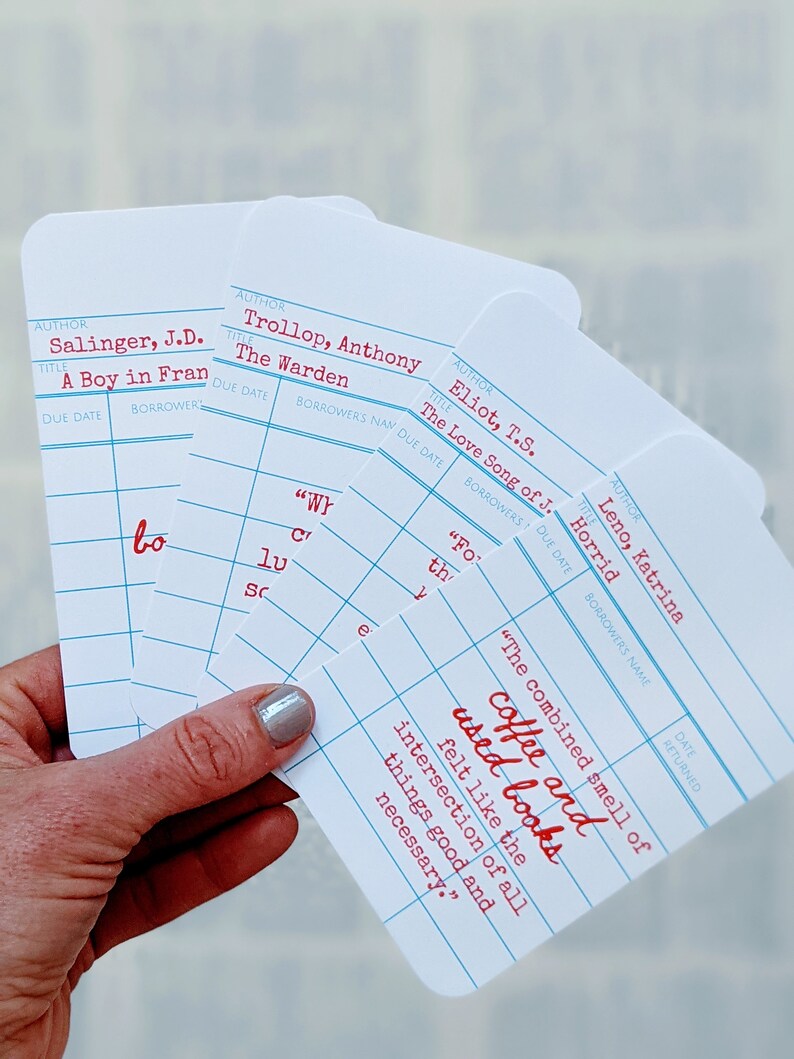 AUTHOR
Salinger, J.D.
TITLE
A Boy in Fran
DUE DATE BORROWER'S
bo
AUTHOR
Trollop, Anthony
TITLE
The Warden
DUE DATE BORROWER'S NAM
"Wh
co
lu
so
AUTHOR
Eliot, T.S.
TITLE
The Love Song of J.
DUE DATE BORROWER'S N
"For
tha
AUTHOR
Leno, Katrina
TITLE
Horrid
DUE DATE BORROWER'S NAME DATE RETURNED
"The combined smell of
coffee and
used books
felt like the
intersection of all
things good and
necessary."